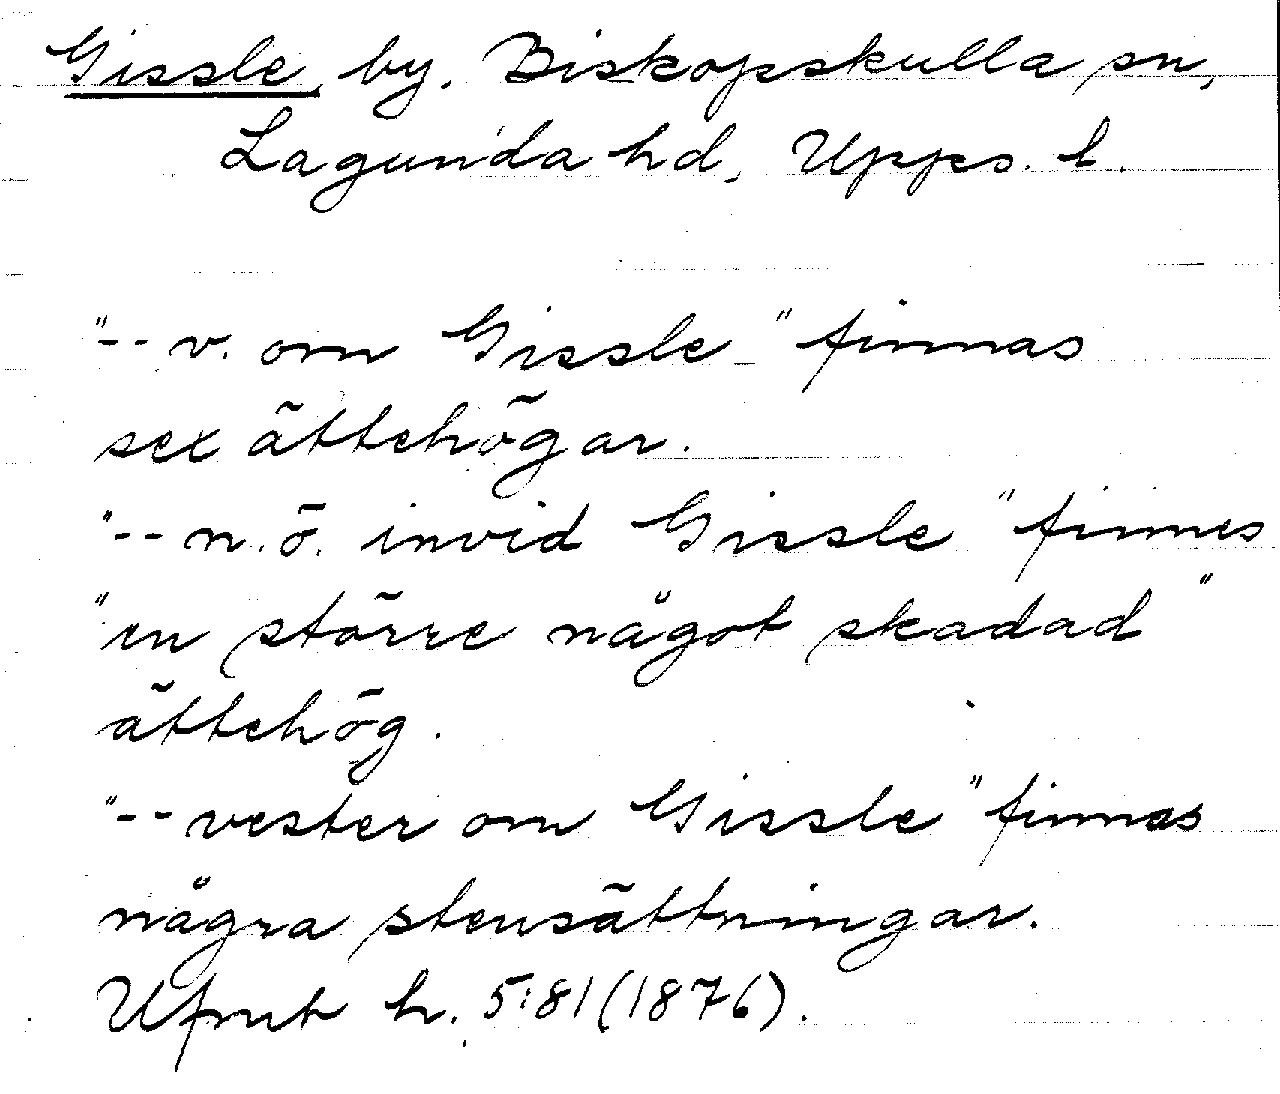 Gissle, by, Biskopskulla sn,
Lagunda hd, Upps. l.
"-- v. om Gissle" finnas
sex ättehögar.
"-- n.ö. invid Gissle" finnes
"en större något skadad"
ättehög.
"-- vester om Gissle" finnas
några stensättningar.
Ufmt h. 5:81 (1876).